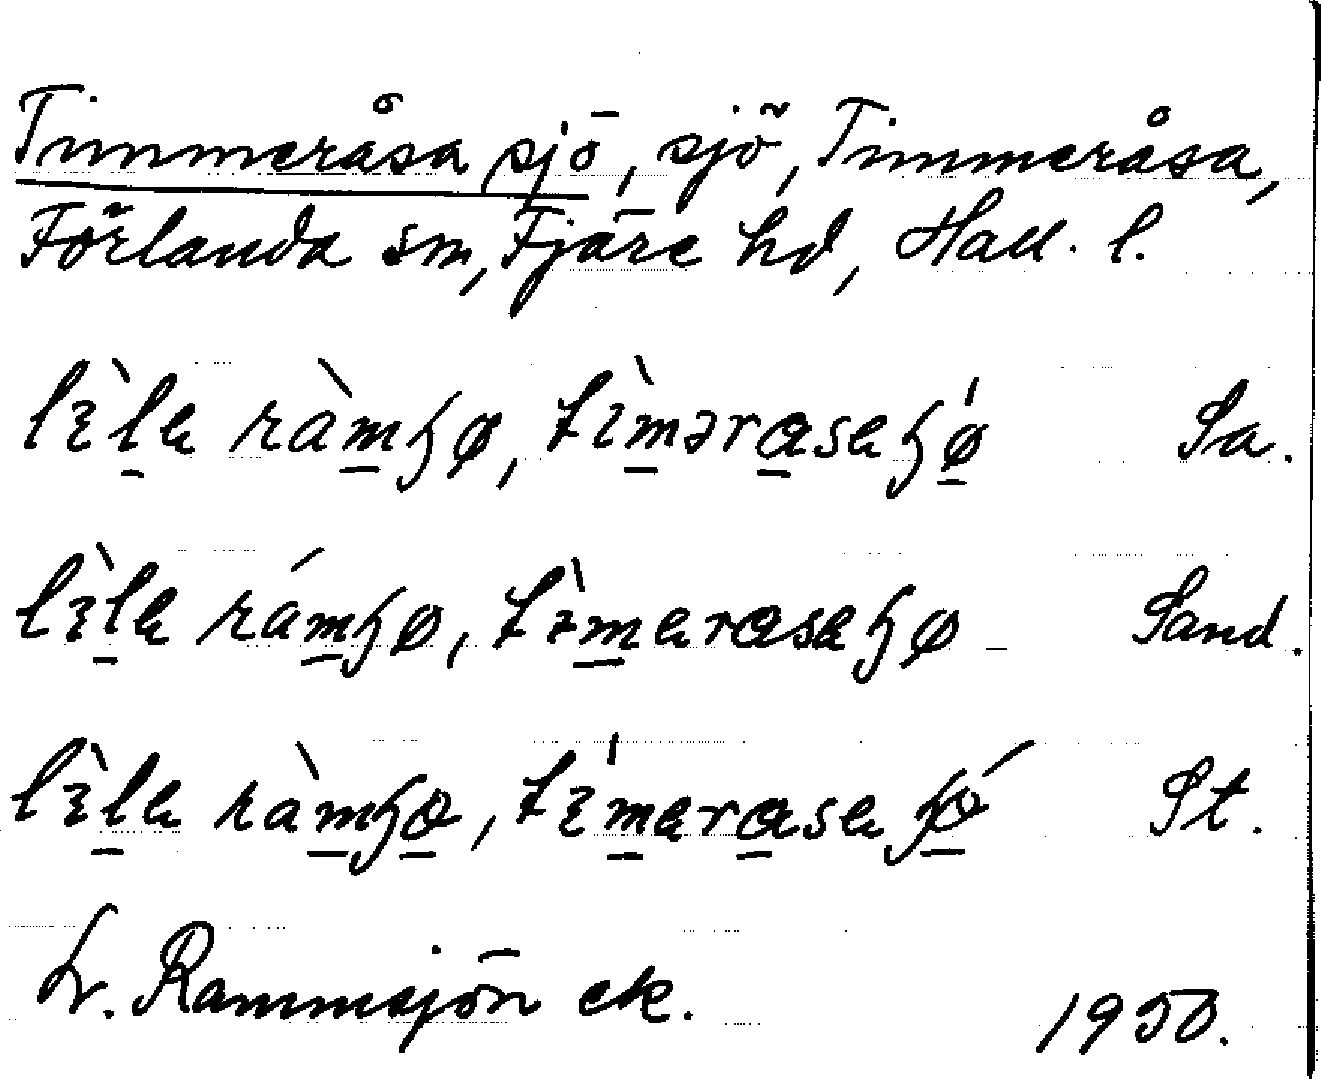 Timmeråsa sjö, sjö, Timmeråsa,
Förlanda sn, Fjäre hd, Hall. l.
lìla ràmʂø, tìmərasaʂǿ Sa.
lìla rámʂø, tìmarasaʂø Sand.
lìla ràmʂø, tímarasaʂǿ St.
L. Rammsjön ek. 1950.